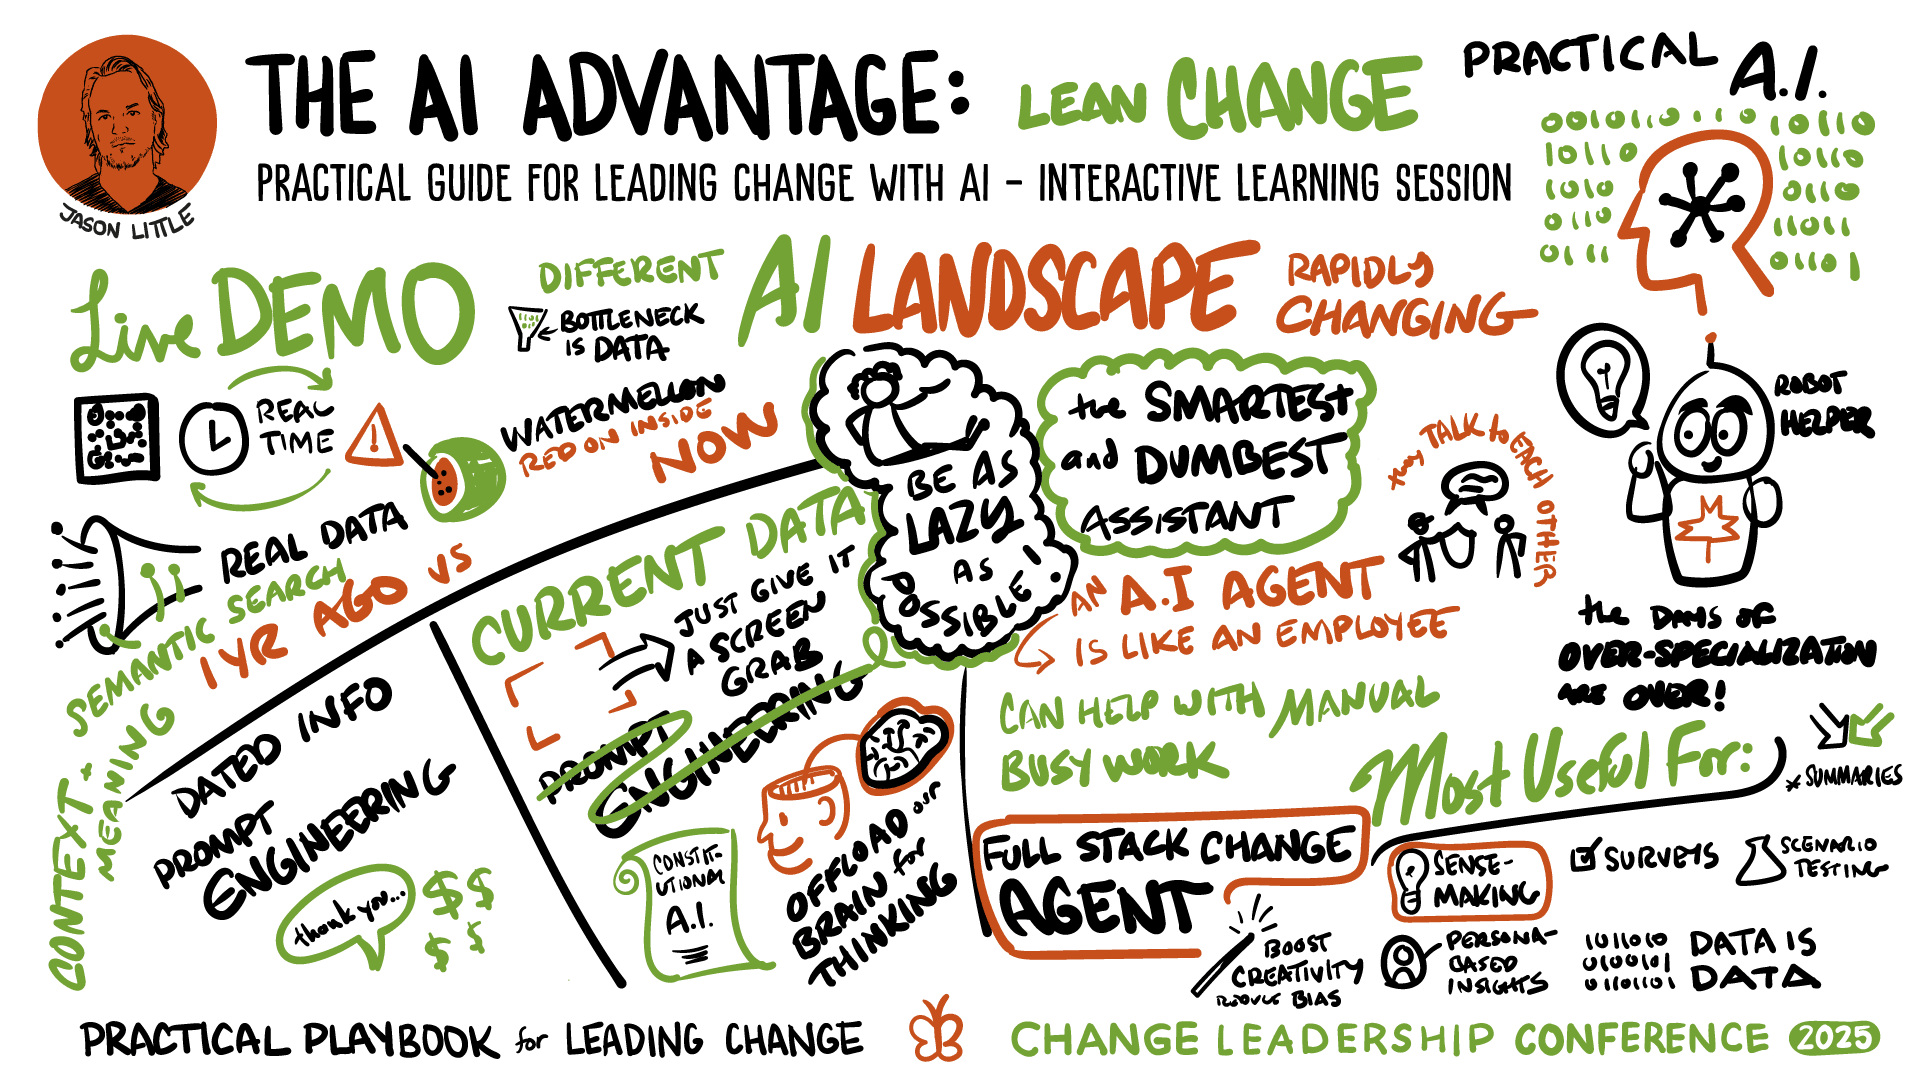 THE AI ADVANTAGE:
LEAN CHANGE
PRACTICAL A.I.
PRACTICAL GUIDE FOR LEADING CHANGE WITH AI - INTERACTIVE LEARNING SESSION
JASON LITTLE
0010110110
101110
10110
10110
1010
0110
0110
11011
0111
01101
Live DEMO
DIFFERENT
BOTTLENECK
IS DATA
AI LANDSCAPE
RAPIDLY
CHANGING
REAL
TIME
WATERMELLON
RED ON INSIDE
NOW
REAL DATA
SEMANTIC SEARCH
1 YR AGO VS
CONTEXT +
MEANING
DATED INFO
PROMPT
ENGINEERING
thank you...
$ $
$ $
CURRENT DATA
JUST GIVE IT
A SCREEN
GRAB
PROMPT
ENGINEERING
CONSTIT-
UTIONAL
A.I.
OFFLOAD our
BRAIN for
THINKING
BE AS
LAZY
AS
POSSIBLE!
the SMARTEST
and DUMBEST
ASSISTANT
they TALK to EACH OTHER
AN A.I AGENT
IS LIKE AN EMPLOYEE
CAN HELP WITH MANUAL
BUSY WORK
FULL STACK CHANGE
AGENT
BOOST
CREATIVITY
REDUCE BIAS
ROBOT
HELPER
the DAYS OF
OVER-SPECIALIZATION
ARE OVER!
MOST USEFUL FOR:
* SUMMARIES
SENSE-
MAKING
SURVEYS
SCENARIO
TESTING
PERSONA-
BASED
INSIGHTS
1011010
0100101
0110101
DATA IS
DATA
PRACTICAL PLAYBOOK for LEADING CHANGE
CHANGE LEADERSHIP CONFERENCE 2025